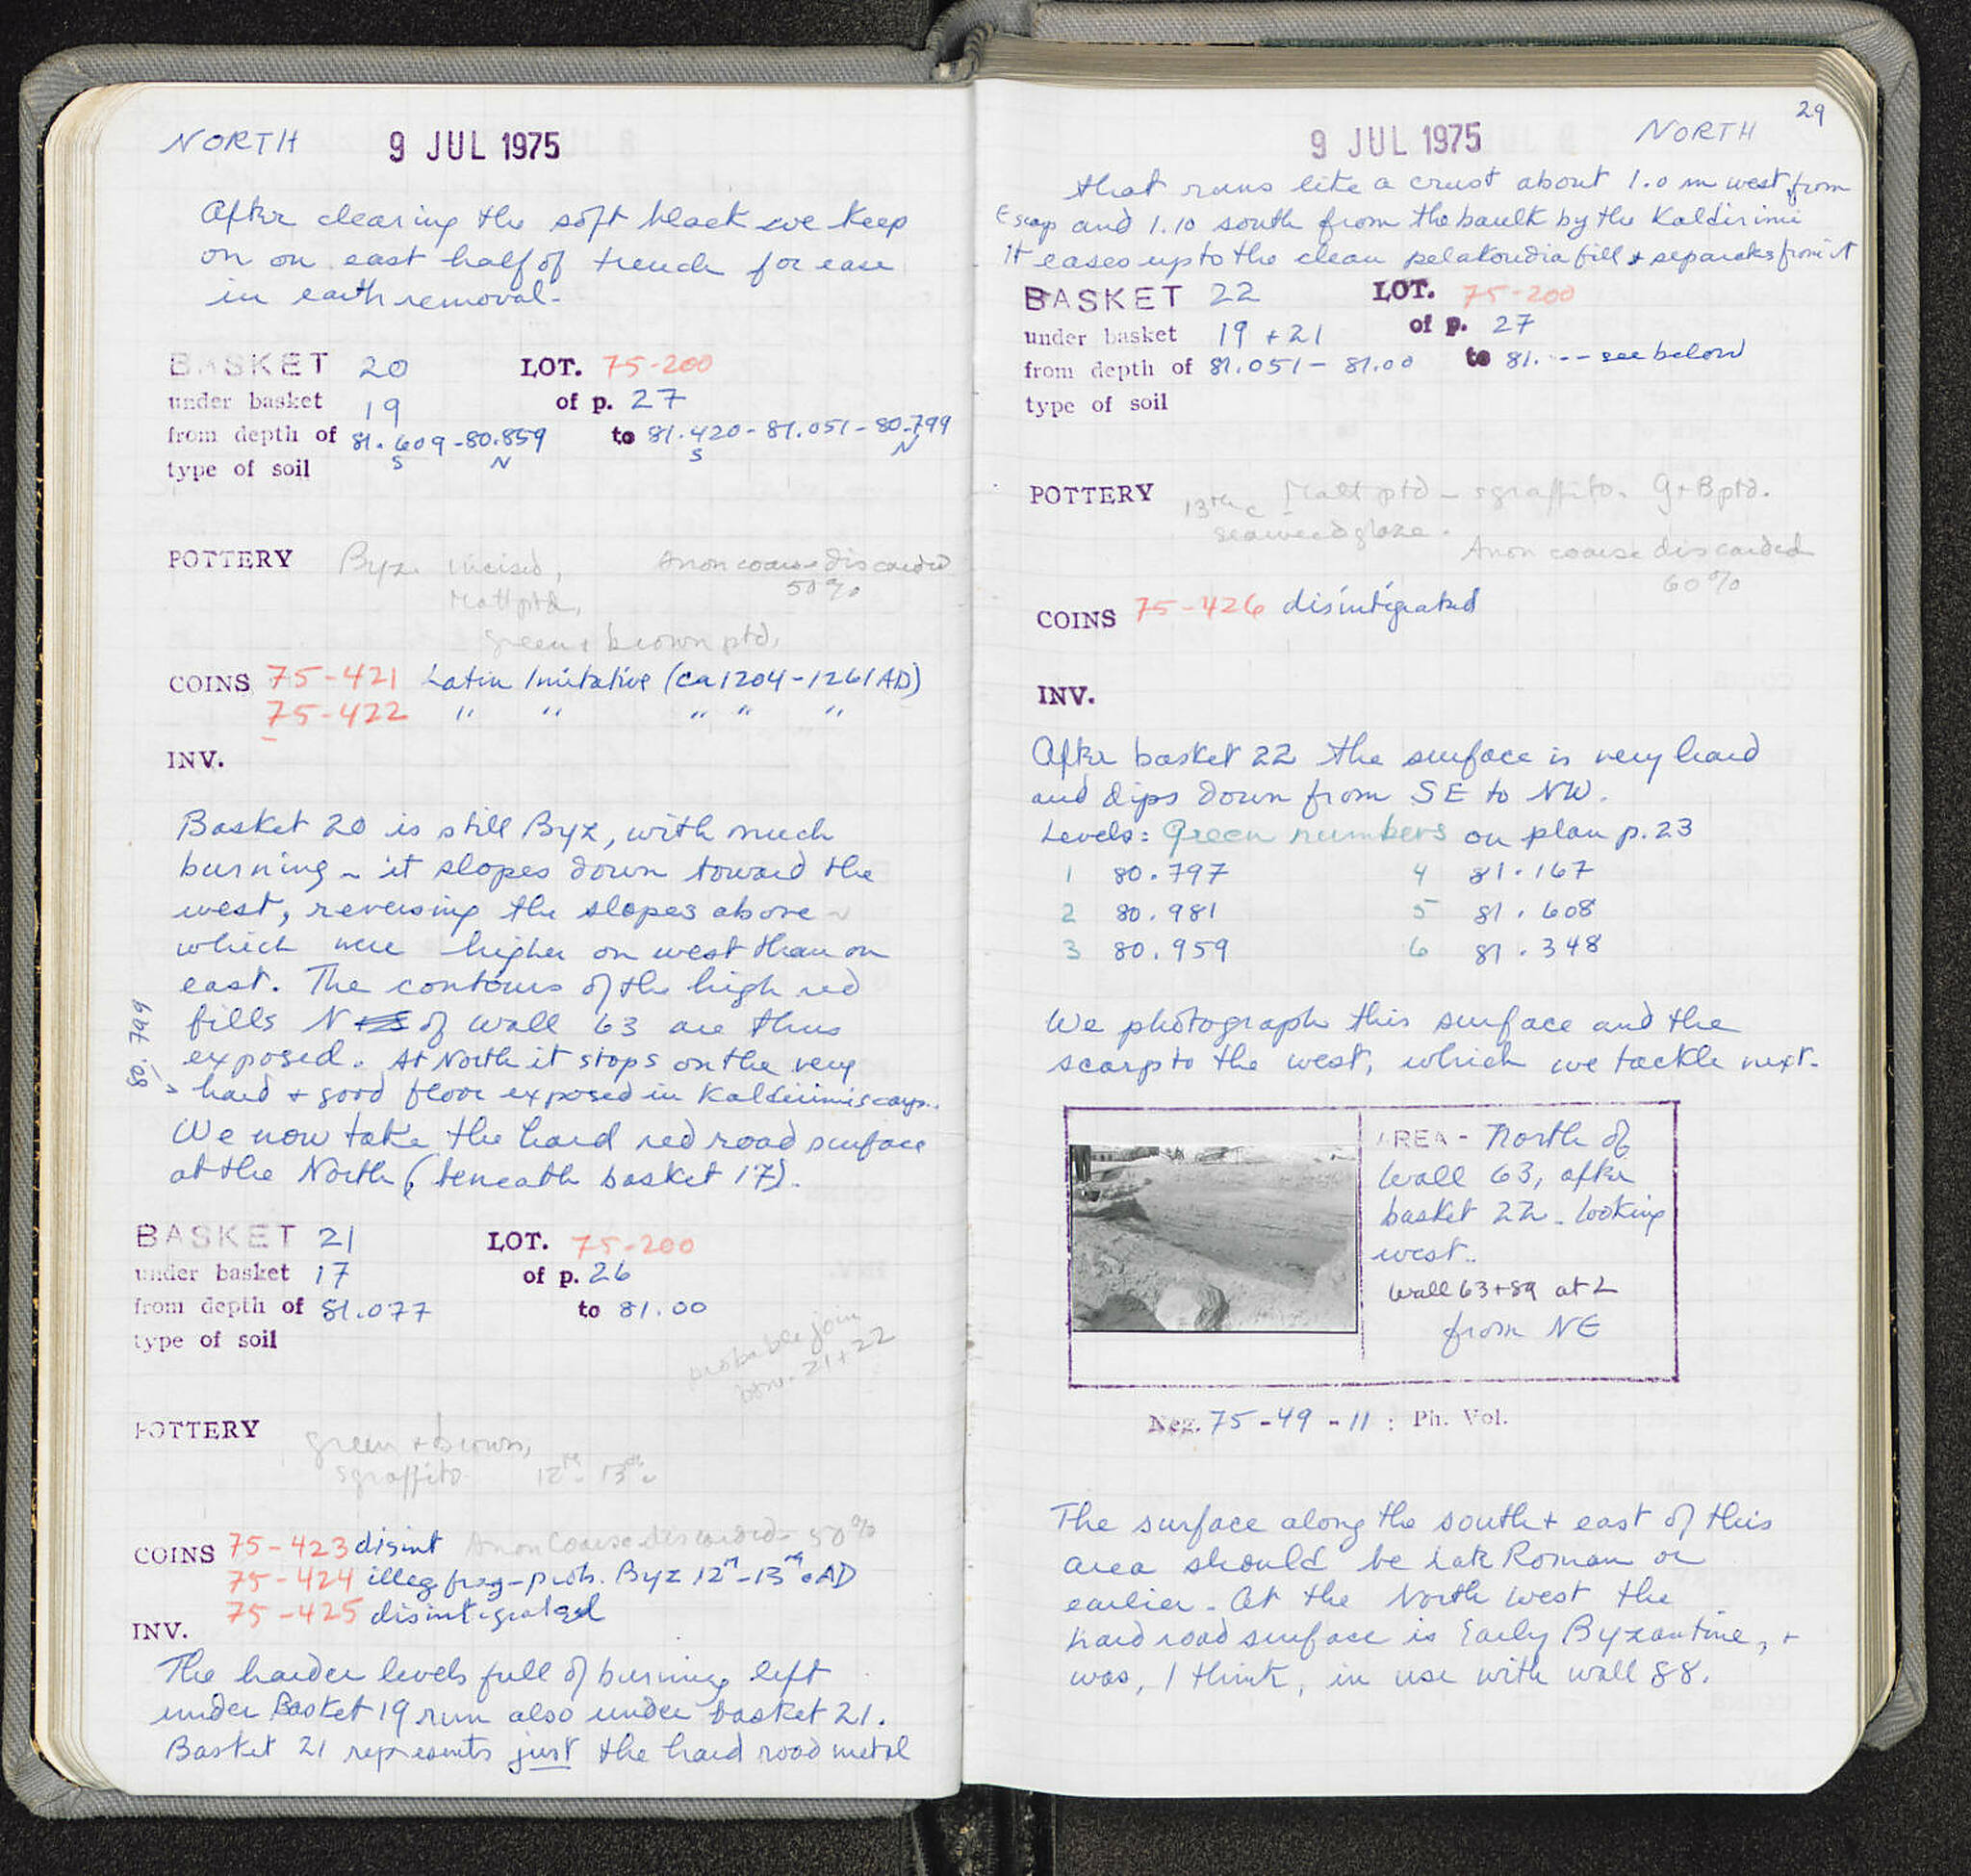 NORTH 9 JUL 1975
After clearing the soft black we keep
on on east half of trench for ease
in earth removal-
BASKET 20 LOT. 75-200
under basket 19 of p. 27
from depth of 81.609 - 80.859 to 81.420 - 81.051 - 80.799
S N S N
type of soil
POTTERY Byz. incised, Anon coarse discarded
Matt ptd, 50%
green + brown ptd,
COINS 75-421 Latin Imitative (ca 1204-1261 AD)
75-422 " " " " "
INV.
Basket 20 is still Byz, with much
burning - it slopes down toward the
west, reversing the slopes above -
which were higher on west than on
east. The contours of the high red
fills N of wall 63 are thus
exposed. At North it stops on the very
80.799
→ hard + good floor exposed in Kaldirimi scarp.
We now take the hard red road surface
at the North (beneath basket 17).
BASKET 21 LOT. 75-200
under basket 17 of p. 26
from depth of 81.077 to 81.00
type of soil
probable join
btw. 21+22
POTTERY green + brown,
sgraffito 12th - 13th c
COINS 75-423 disint Anon Coarse discarded 50%
75-424 illeg frag - prob. Byz 12th-13th c AD
75-425 disintegrated
INV.
The harder levels full of burning left
under Basket 19 run also under basket 21.
Basket 21 represents just the hard road metal
29
9 JUL 1975 NORTH
that runs like a crust about 1.0 m west from
E scarp and 1.10 south from the baulk by the Kaldirimi
It eases up to the clean pelakoudia fill + separates from it
BASKET 22 LOT. 75-200
under basket 19 + 21 of p. 27
from depth of 81.051 - 81.00 to 81.--- see below
type of soil
POTTERY 13th c Matt ptd - sgraffito. G+B ptd.
seaweed glaze.
Anon coarse discarded
60%
COINS 75-426 disintigrated
INV.
After basket 22 the surface is very hard
and dips down from SE to NW.
Levels: Green numbers on plan p.23
1 80.797 4 81.167
2 80.981 5 81.608
3 80.959 6 81.348
We photograph this surface and the
scarp to the west, which we tackle next.
AREA - North of
wall 63, after
basket 22 - looking
west..
wall 63+89 at L
from NE
Neg. 75-49-11 : Ph. Vol.
The surface along the south + east of this
area should be Late Roman or
earlier - At the North West the
hard road surface is Early Byzantine, +
was, I think, in use with wall 88.